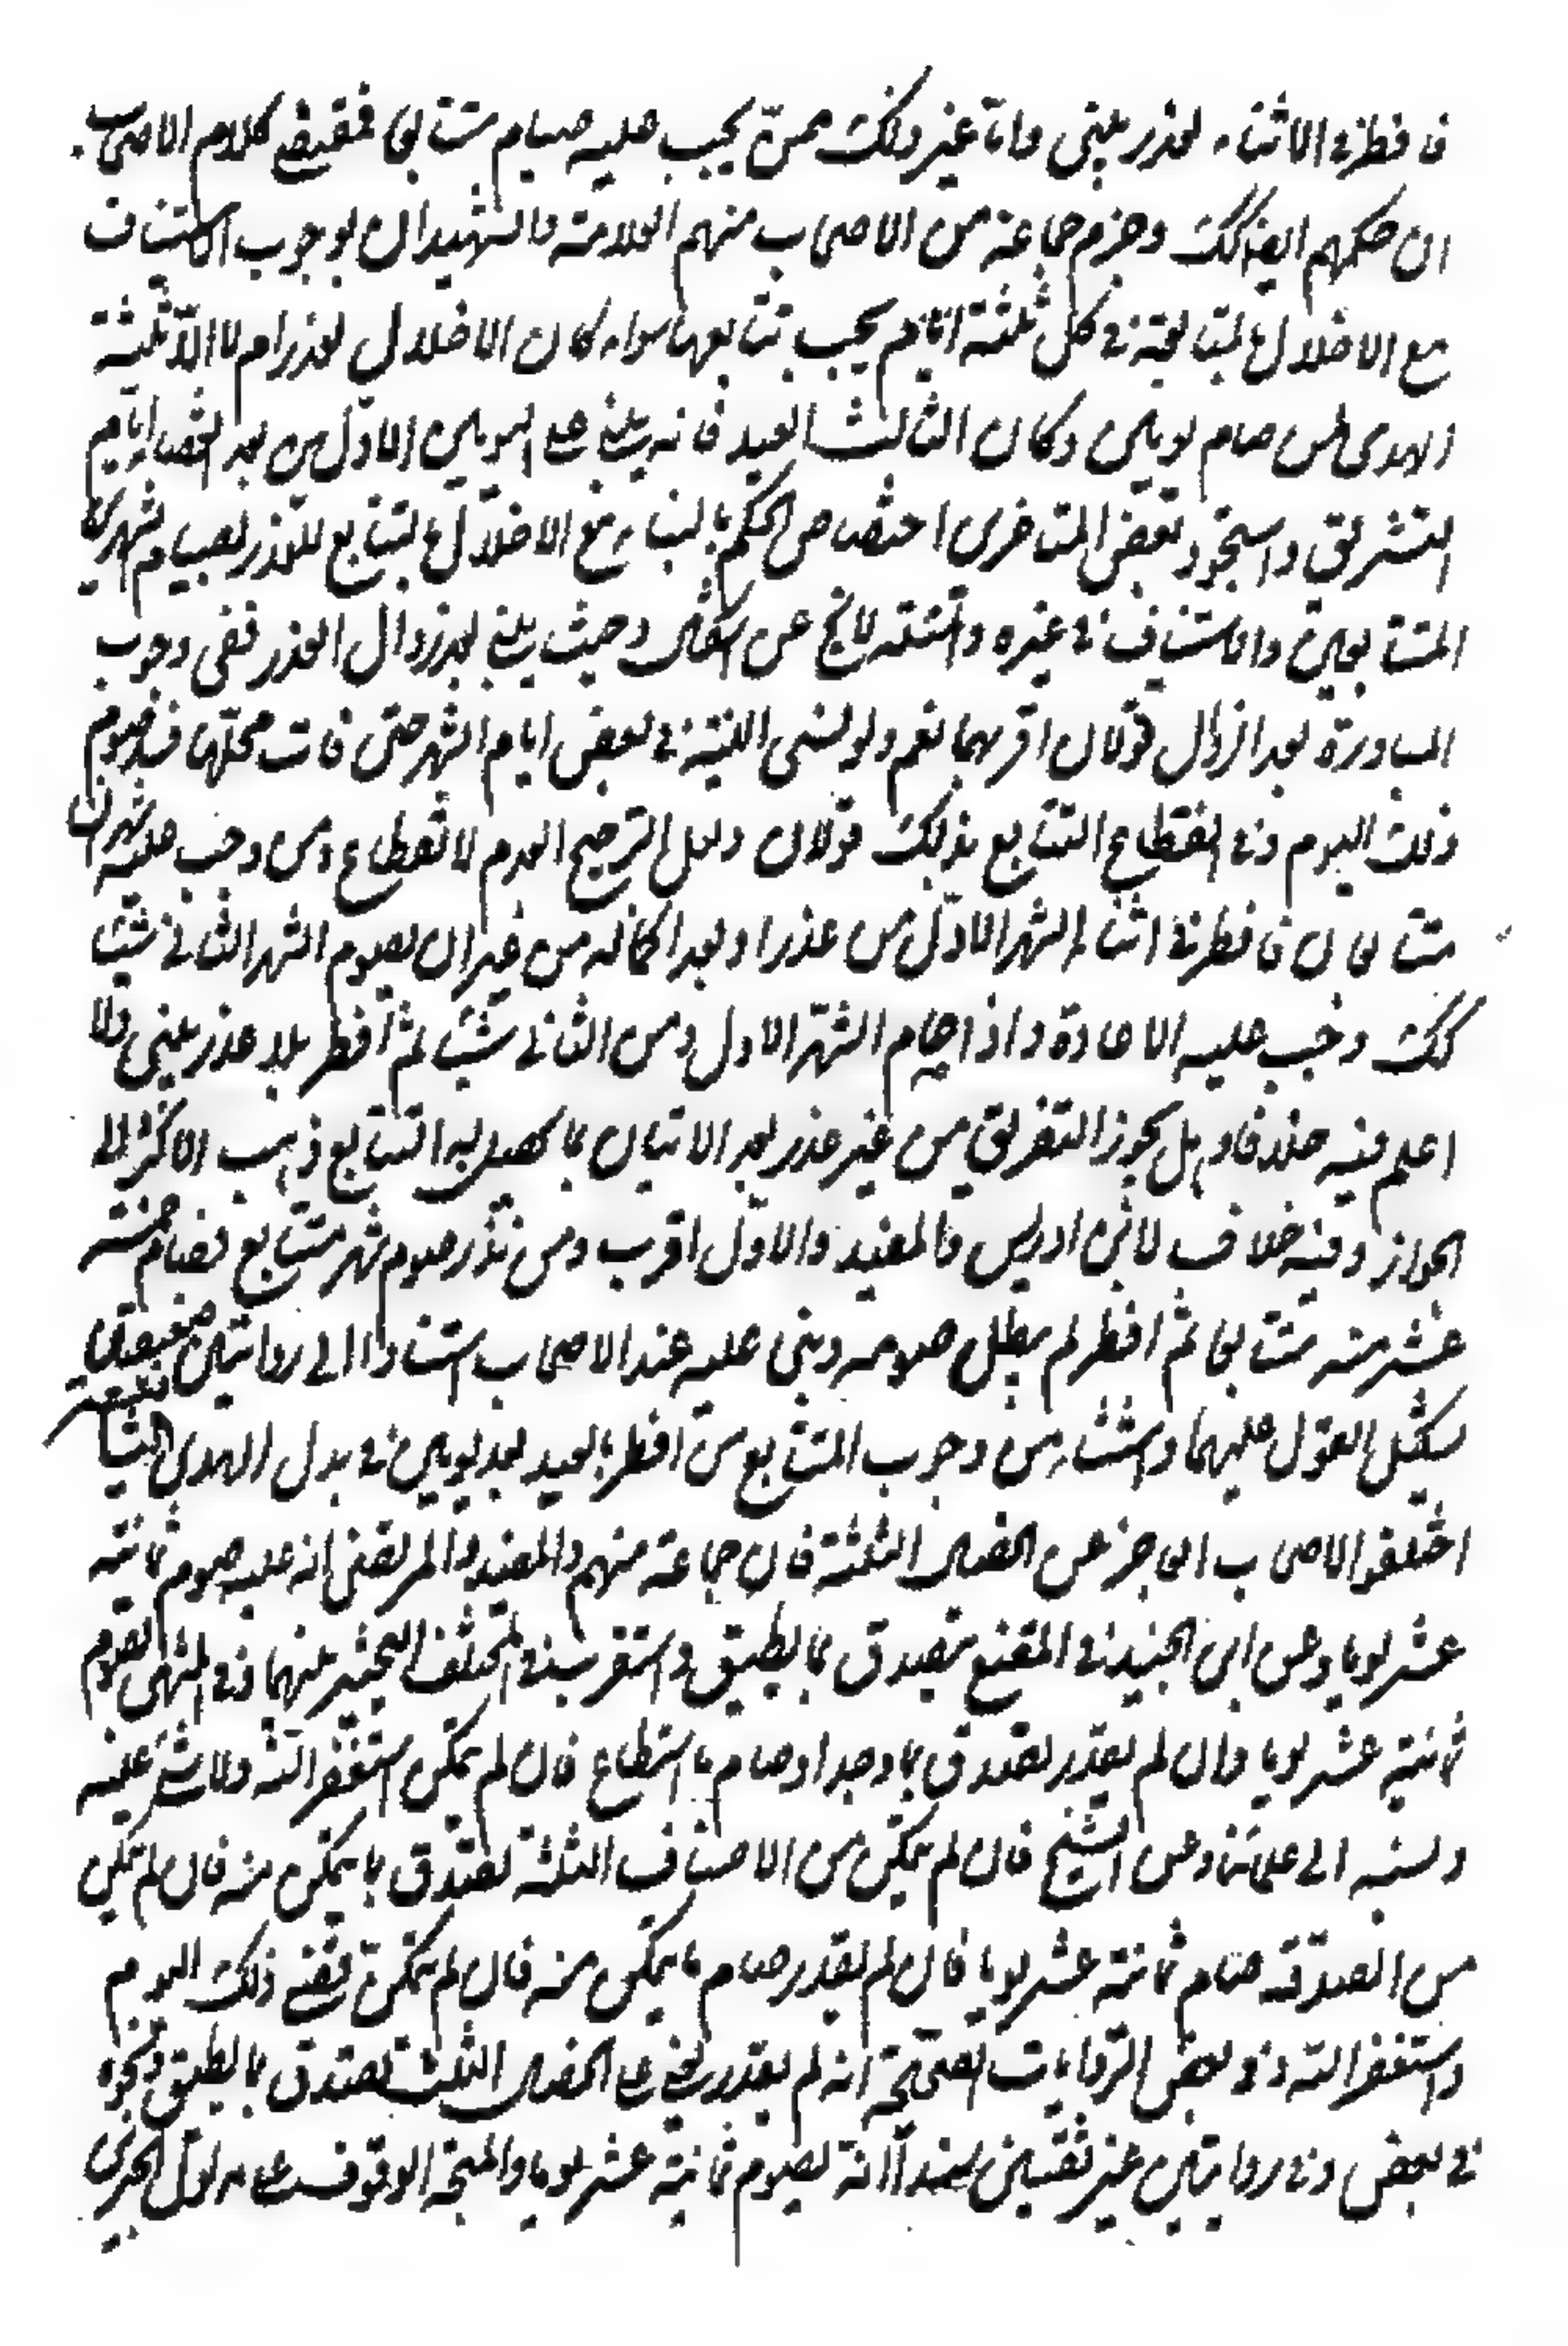 فافطر في الاثناء لعذر يبني واما غير ذلك ممن يجب عليه صيام متتابعا فمقتضى كلام الاصحاب
ان حكمهم ايضا كك وجزم جماعة من الاصحاب منهم العلامة والشهيدان بوجوب الاستيناف
مع الاخلال بالمتابعة في كل ثلثة ايام يجب تتابعها سواء كان الاخلال لعذر ام لا الا ثلثة
الهدى لمن صام يومين وكان الثالث العيد فانه يبني على اليومين الاولين بعد انقضاء ايام
التشريق واستجود بعض المتاخرين اختصاص الحكم بالبناء مع الاخلال بالتتابع للعذر بصيام شهرين
المتتابعين والاستيناف في غيره والمسئلة لا تخ عن اشكال وحيث يبني بعد زوال العذر ففي وجوب
المبادرة بعد الزوال قولان اقربهما نعم ولو نسى النية في بعض ايام الشهر حتى فات محلها فسد صوم
ذلك اليوم وفي انقطاع التتابع بذلك قولان ولعل الترجيح لعدم الانقطاع ومن وجب عليه شهران
متتابعان فافطر في اثناء الشهر الاول من عذر او بعد اكماله من غير ان يصوم الشهر الثاني شيئا
كك وجب عليه الاعادة واذا صام الشهر الاول ومن الثاني شيئا ثم افطر بلا عذر يبني ولا
اعلم فيه خلافا وهل يجوز التفريق من غير عذر بعد الاتيان بما يحصل به التتابع ذهب الاكثر الى
الجواز وفيه خلاف لابن ادريس والمفيد والاول اقرب ومن نذر صوم شهر متتابع فصام خمسة
عشر منه متتابعا ثم افطر لم يبطل صومه وبنى عليه عند الاصحاب استنادا الى روايتين ضعيفتين
يشكل التعويل عليهما واستثناء من وجوب التتابع من افطر بالعيد بعد يومين في بدل الهدى
اختلف الاصحاب في العاجز عن الخصال الثلثة فقال جماعة منهم المفيد والمرتضى انه عليه صوم ثمانية
عشر يوما وعن ابن الجنيد في المقنع يتصدق بما يطيق واستقرب في المختلف التخيير بينهما وفي المنتهى يصوم
ثمانية عشر يوما وان لم يقدر تصدق بما وجد او صام ما استطاع فان لم يتمكن استغفر الله ولا شيء عليه
ونسبه الى علمائنا وعن الشيخ فان لم يتمكن من الاصناف الثلثة تصدق بما يتمكن منه فان لم يتمكن
من الصدقة صام ثمانية عشر يوما فان لم يقدر صام ما يتمكن منه فان لم يتمكن قضى ذلك اليوم
واستغفر الله وفي بعض الروايات الصحيحة انه لم يقدر يعني على الخصال الثلث تصدق بما يطيق ونحوه
في بعض وفي روايتين غير نقيتين سندا انه يصوم ثمانية عشر يوما والمتجه الوقوف على مدلول الخبرين